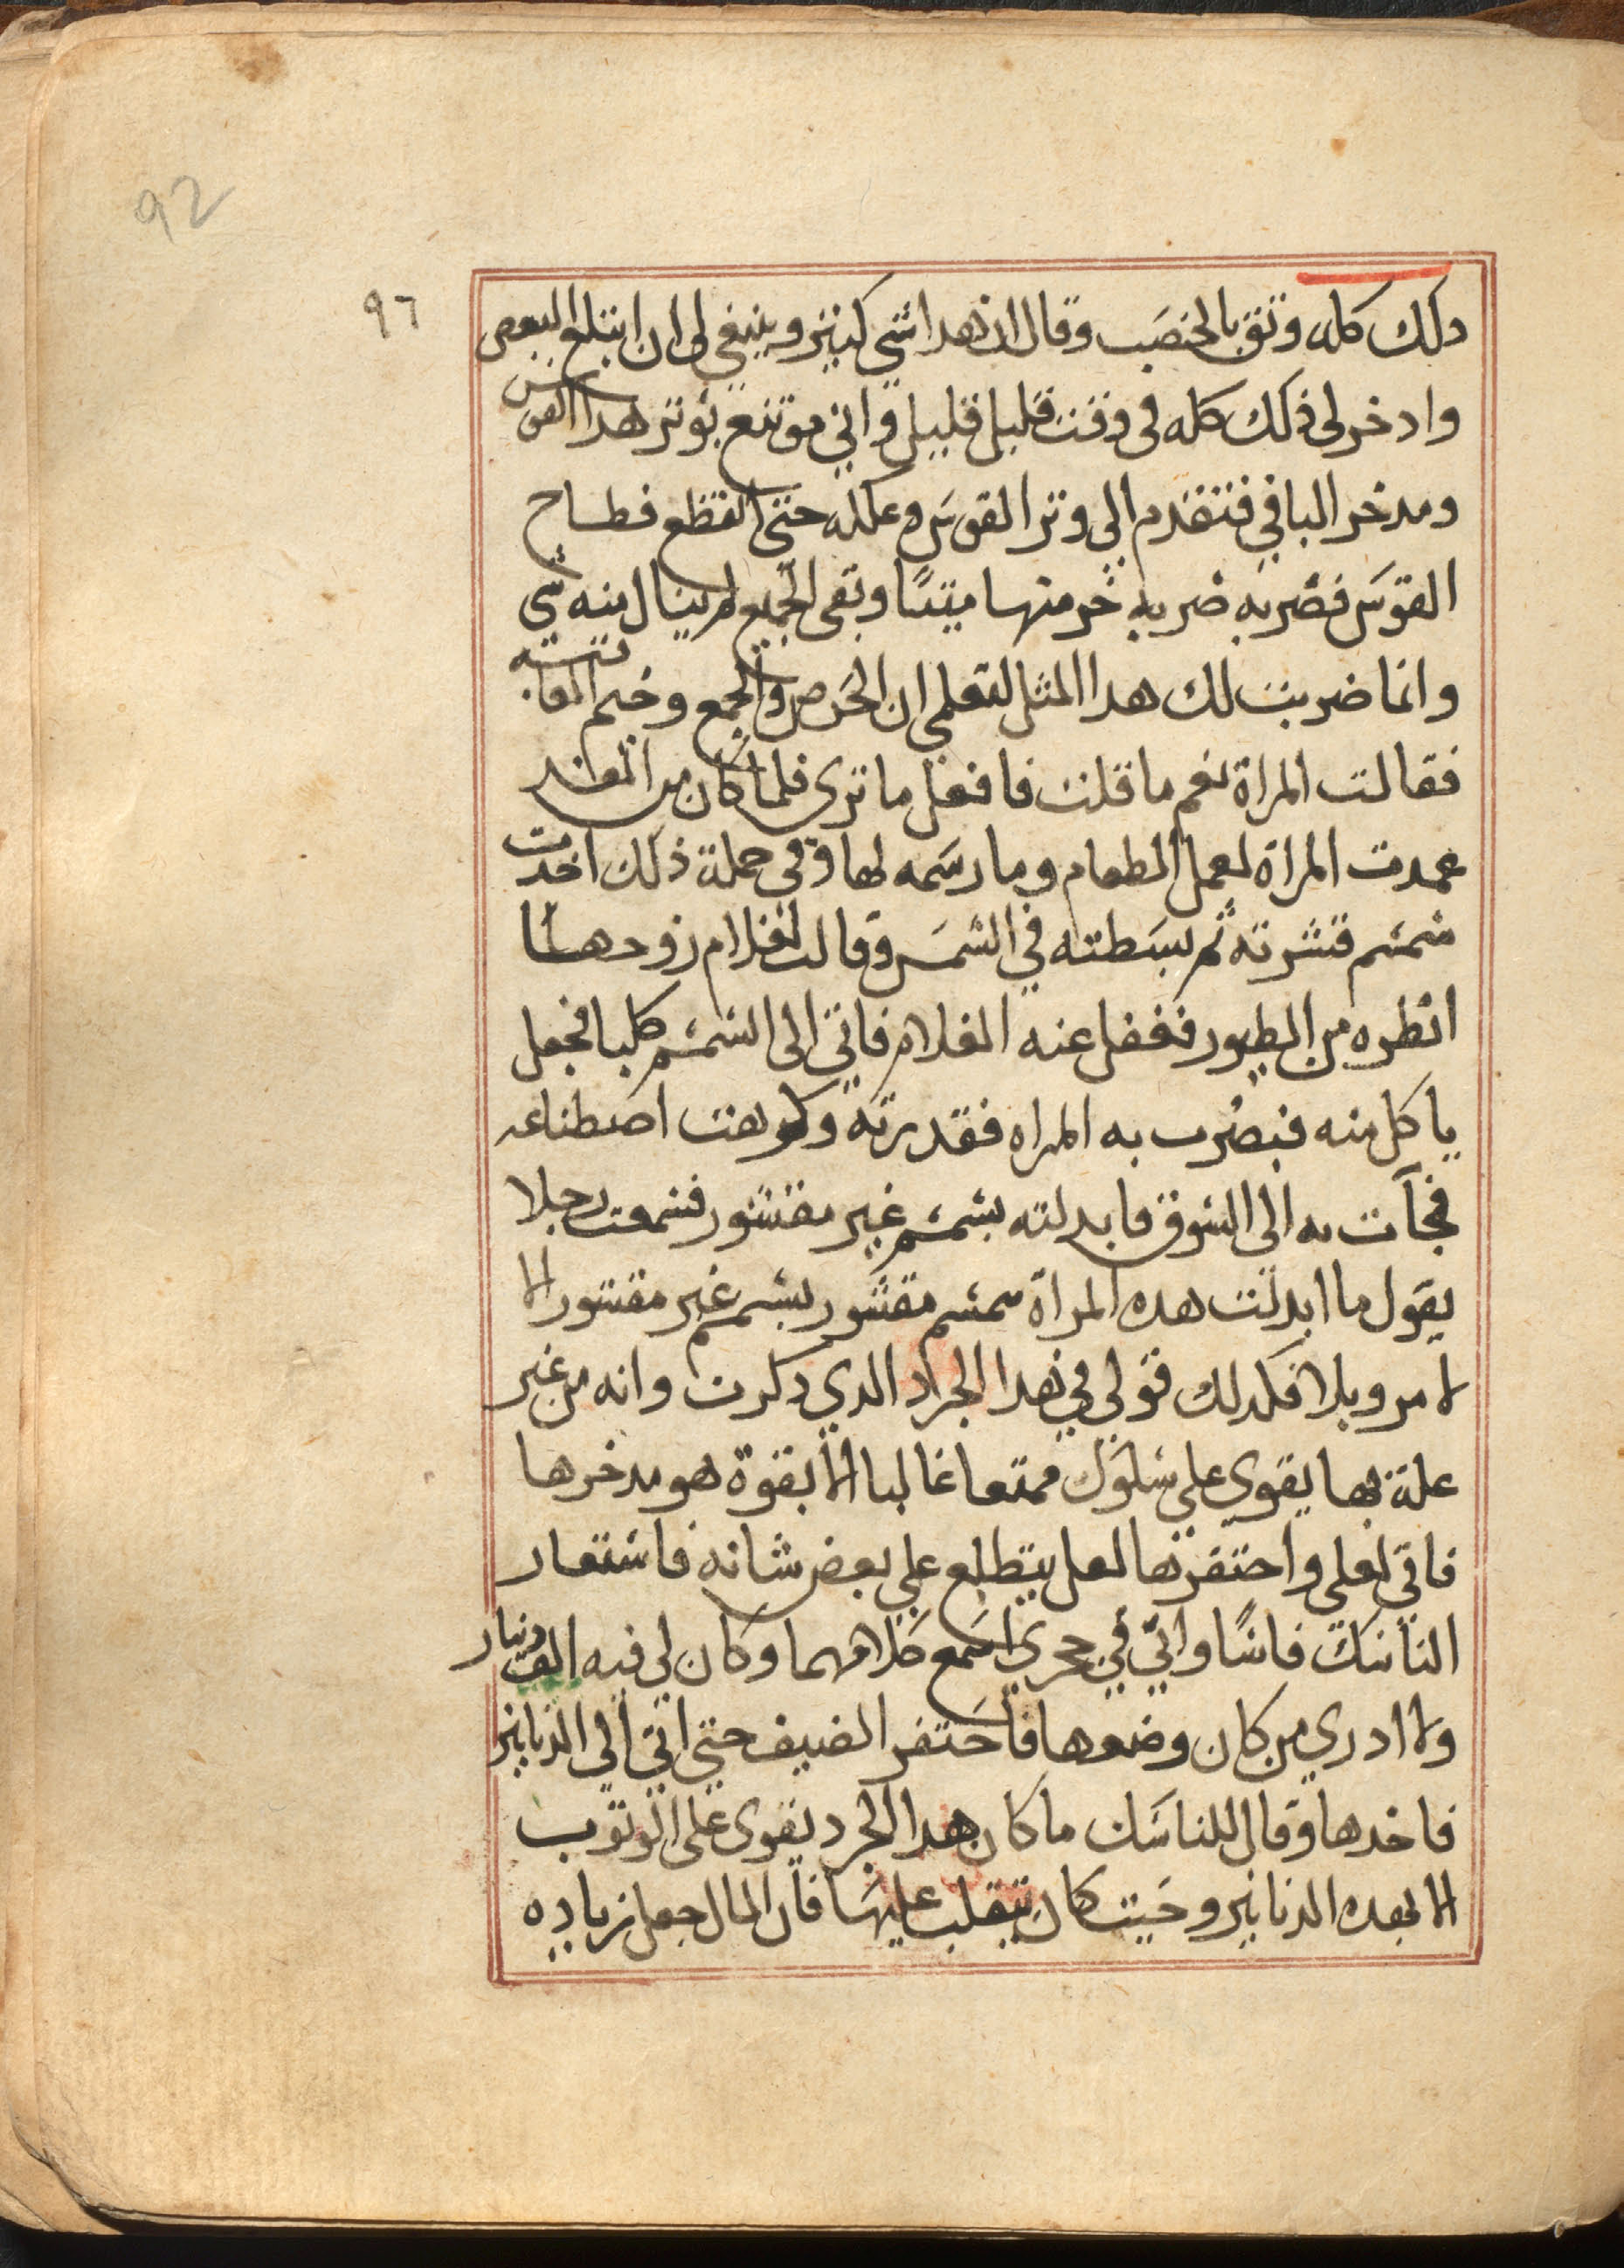 92
٩٦
دلك كله وتق بالخصَب وقال ان هدا شي كتير وينبغي لي ان ابتلع البعض
وادخر لي ذلك كله في وقت قليل قليل واني مقتنع بوتر هدا القوس
ومدخر الباقي فتقدم الي وتر القوسَ وعلكه حتي انقطع فطاح
القوسَ فضربه ضربه خر منها ميتًا وبقى الجميع لم ينال منه شي
وانما ضربت لك هدا المثل لتعلمي ان الحَرص والجمع وخيم العاقبه
فقالت المراة نعم ما قلت فافعل ما تري فلما كان من الغد
عمدت المراة لعمل الطعام وما رسَمه لها وفي جملة ذلك اخدت
سَمسم قشرته ثم بسَطته في الشمسَ وقالت لغلام زوجها
انظره من الطيور فغفل عنه الغلام فاتي الى السَمسم كلبا فجعل
ياكل منه فبصُرت به المراه فقدرته وكرهت اصطناعه
فجآت به الي السَوق فابدلته بسَمسم غير مقشور فسَمعت رجلا
يقول ما ابدلت هده المراة سمسم مقشور بسَمسم غير مقشور الا
لامر وبلا فكدلك قولي في هدا الجراد الدي دكرت وانه من غير
علة بها يقوي على سَلوك ممتعا غالبا الا بقوة هو مدخرها
فاتي لعلي واحتفرها لعل يتطلع علي بعض شانه فاستعار
الناسَك فاسًا واني في حجري اسَمع كلامهما وكان لي فيه الف دينار
ولا ادري من كان وضعها فاحَتفر الضيف حتي اتي الي الدنانير
فاخدها وقال للناسَك ما كان هدا الجرد يقوى على الوتوب
الا بهده الدنانير وحَيت كان يتقلب عليهَا فان المال جعل زياده